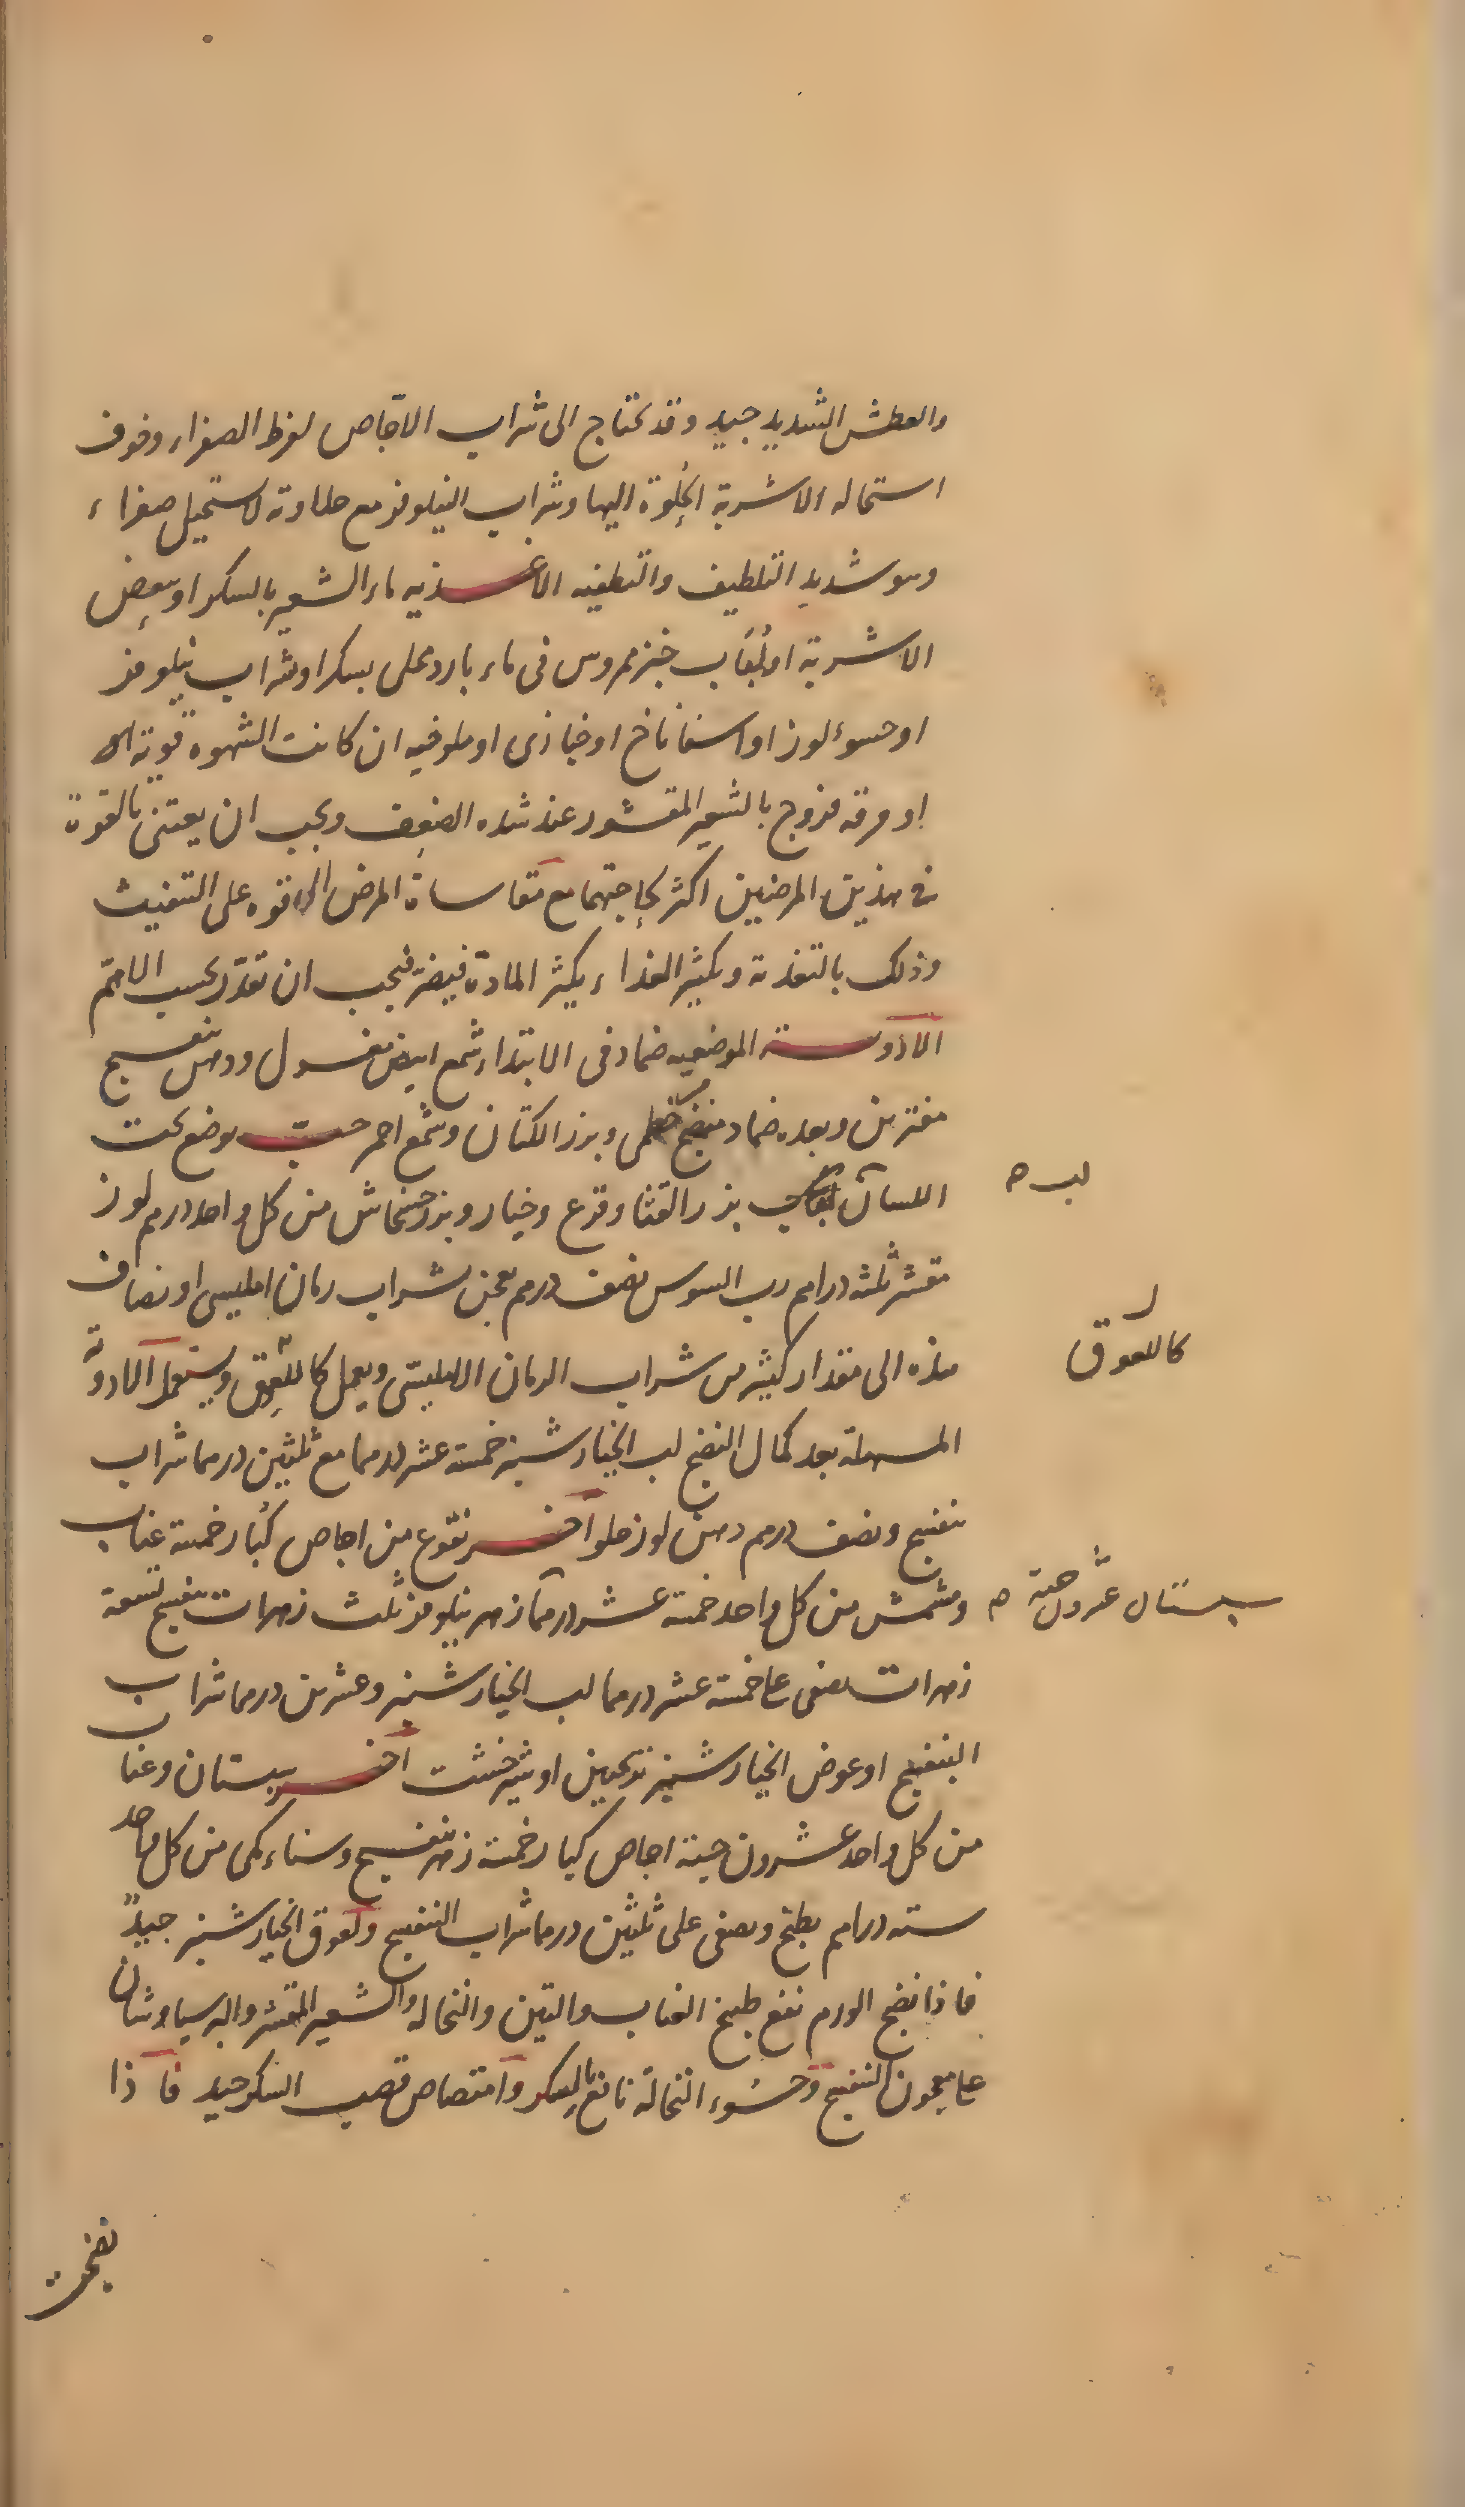 والعطش الشديد جيد وقد تحتاج الى شراب الاجاص لفرط الصفراء وخوف
استحاله الاشربة الحلوة اليها وشراب النيلوفر مع حلاوته لا يستحيل صفراء
وهو شديد التلطيف والتطفيه الاغذيه ماء الشعير بالسكر او ببعض
الاشربة او لباب خبز ممروس فى ماء بارد محلى بسكر او شراب نيلوفر
او حسو لوز او اسفاناخ او خبازى او ملوخيه ان كانت الشهوه قوية
او مرقه فروج بالشعير المقشور عند شده الضعف ويجب ان يعتنى بالقوة
فى هذين المرضين اكثر لحاجتهما مع مقاساة المرض الى قوه على التنفيث
وذلك بالتغذية وتكثير الغذاء يكثر المادة فيضر فيجب ان تقدر بحسب الاهم
الادوية الموضعيه ضماد فى الابتداء شمع ابيض مغسول ودهن بنفسج
مفترين وبعده ضماد منضج خطمى وبزر الكتان وشمع احمر حب يوضع تحت
اللسان بزر القثا وقرع وخيار وبزر خشخاش من كل واحد درهم لوز
لب ح
مقشر ثلثه دراهم رب السوس نصف درهم يعجن بشراب رمان امليسى او يضاف
هذه الى مقدار كثير من شراب الرمان الامليسى ويعمل كاللعوق ويستعمل الادوية
كاللعوق
المسهلة بعد كمال النضج لب الخيار شنبر خمسة عشر درهما مع ثلثين درهما شراب
بنفسج ونصف درهم دهن لوز حلو آخر نقوع من اجاص كبار خمسة عناب
ومشمش من كل واحد خمسة عشر درهما زهر نيلوفر ثلث زهرات بنفسج تسعة
سبستان عشرون حبة ح
زهرات يصفى على خمسة عشر درهما لب الخيار شنبر وعشرين درهما شراب
البنفسج او عوض الخيار شنبر ترنجبين او شيرخشت آخر سبستان وعناب
من كل واحد عشرون حبة اجاص كبار خمسة زهر بنفسج وسناء مكى من كل واحد
سته دراهم يطبخ ويصفى على ثلثين درهما شراب البنفسج ولعوق الخيار شنبر جيد
فاذا نضج الورم نفع طبيخ العناب والتين والنخاله والشعير المقشر والبرسياوشان
على معجون البنفسج وحسوء النخالة نافع بالسكر وامتصاص قصب السكر جيد فاذا
نضجت